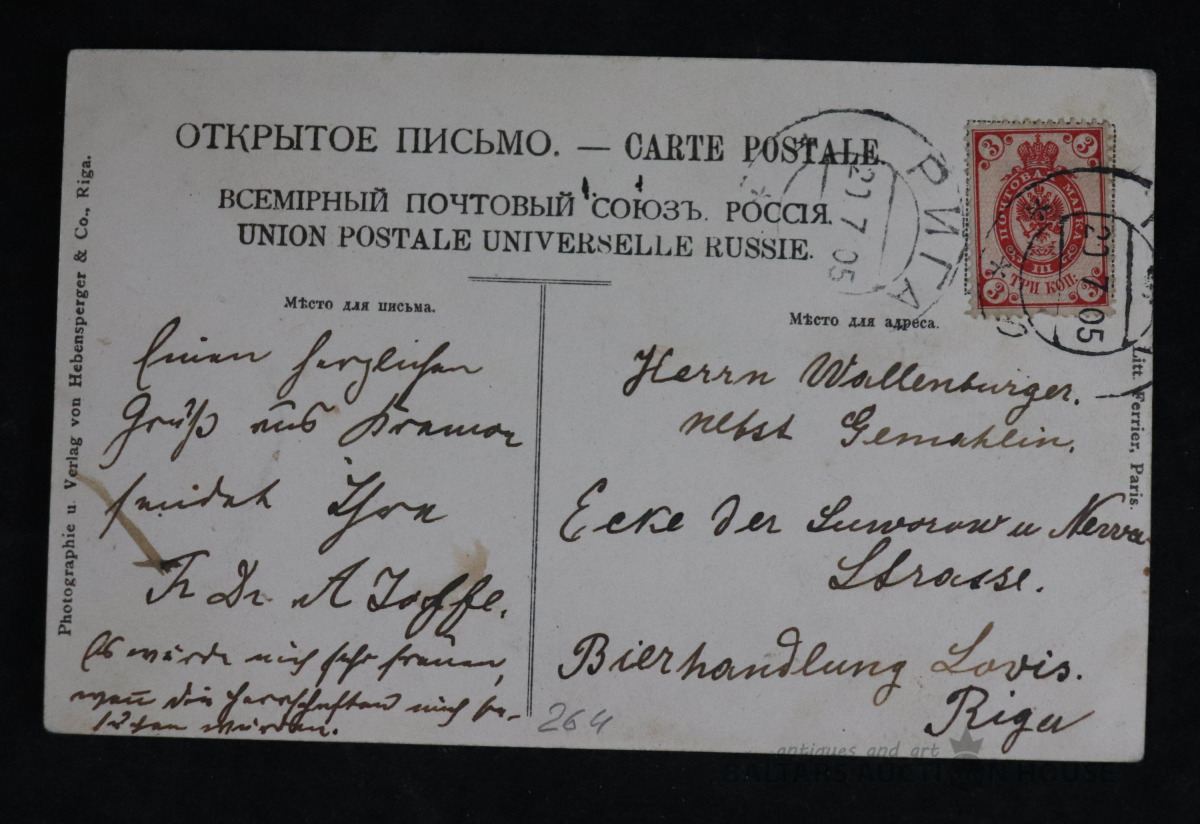 ОТКРЫТОЕ ПИСЬМО. — CARTE POSTALE
ВСЕМІРНЫЙ ПОЧТОВЫЙ СОЮЗЪ. РОССІЯ.
UNION POSTALE UNIVERSELLE RUSSIE.
Мѣсто для письма.
Einen herzlichen
Gruß aus
sendet Ihnen
Fr Dr A Joffe.
Es würde mich sehr freuen,
wen̄ die Herrschaften mich be-
suchen würden.
Мѣсто для адреса.
Herrn Wallenburger.
nebst Gemahlin.
Ecke der Suworow u Newa
Strasse.
Bierhandlung Lovis.
Riga
264
Photographie u. Verlag von Hebensperger & Co., Riga.
Litt. Ferrier, Paris.
РИГА
20 7 05
3 3
ПОЧТОВАЯ МАРКА
III
ТРИ КОП.
3 3
20 7 05
antiques and art
BALTARS AUCTION HOUSE